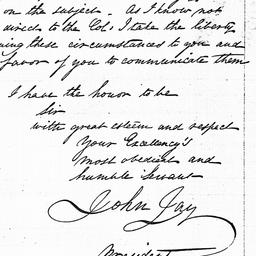 on the subject. As I know not
direct to the Col. I take the liberty
ing these circumstances to you and
favor of you to communicate them
I have the honor to be
Sir
with great esteem and respect
Your Excellency's
most obedient and
humble Servant
John Jay
President